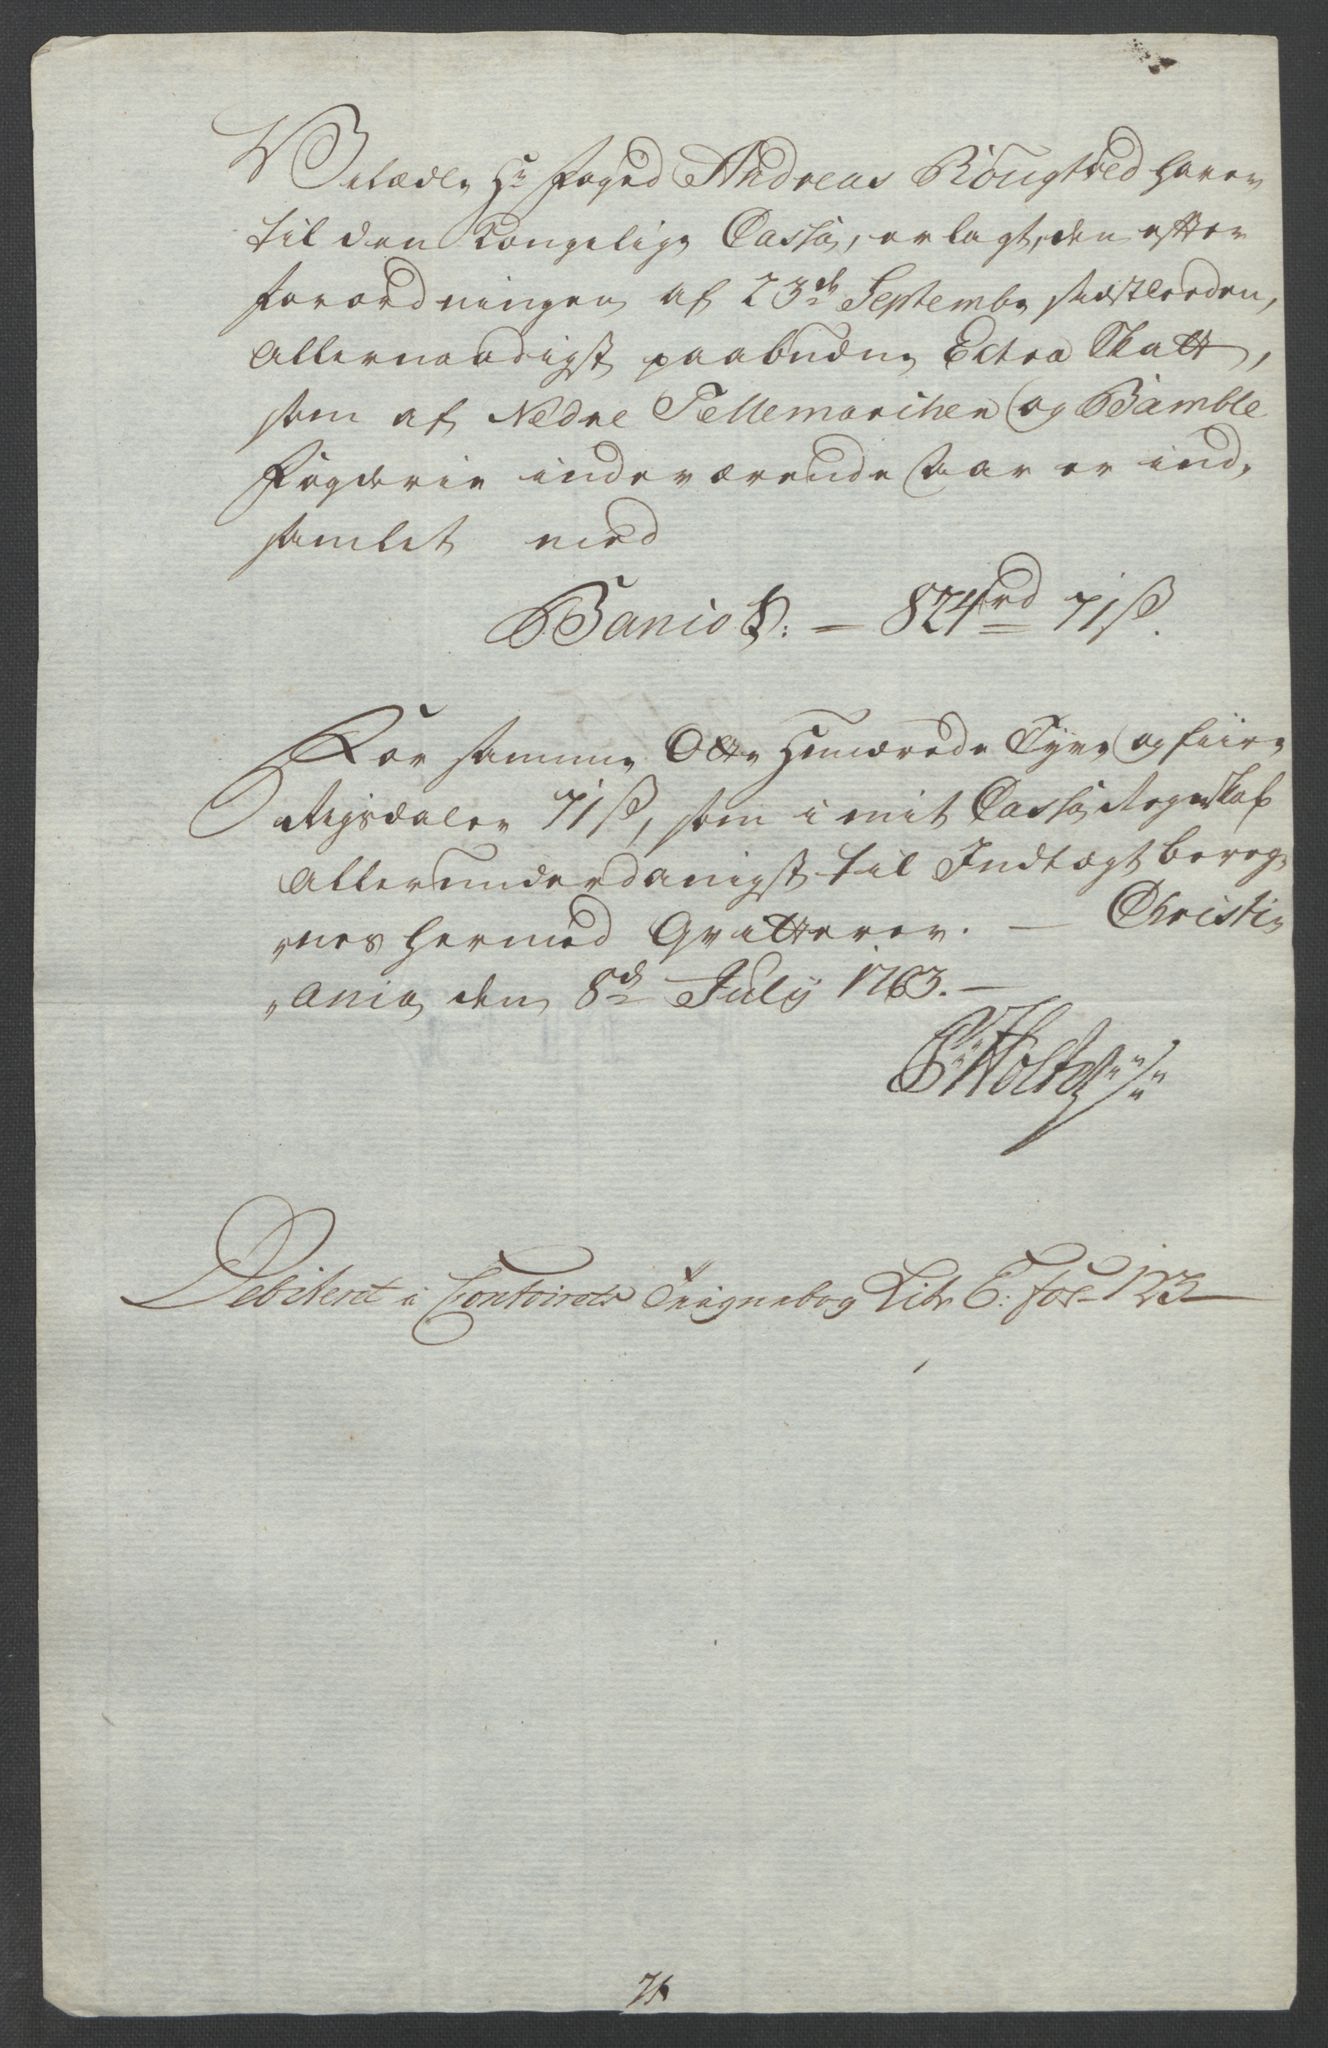 Velædle Hr Foged Andreas Rougtved haver
til den Kongelige Cassa, erlagt, den efter
forordningen af 23de Septembr sidstleeden,
Allernaadigst paabudne Extra Skatt,
som af Nedre Tellemarchen og Bamble
Fogderie indeværende Aar er ind,
samlet med
Banco S: – 824rd 71ß.
For samme Otte Hundrede Tyve og fiire
Rigsdaler 71ß, som i mit Cassa Regnskab
Allerunderdanigst til Indtægt bereg,
,nes hermed Qvitterer. – Christi,
,ania den 8de July 1763. –
P: Holtes
Debiteret i Contoirets Teignebog Litr E: fol 123
71